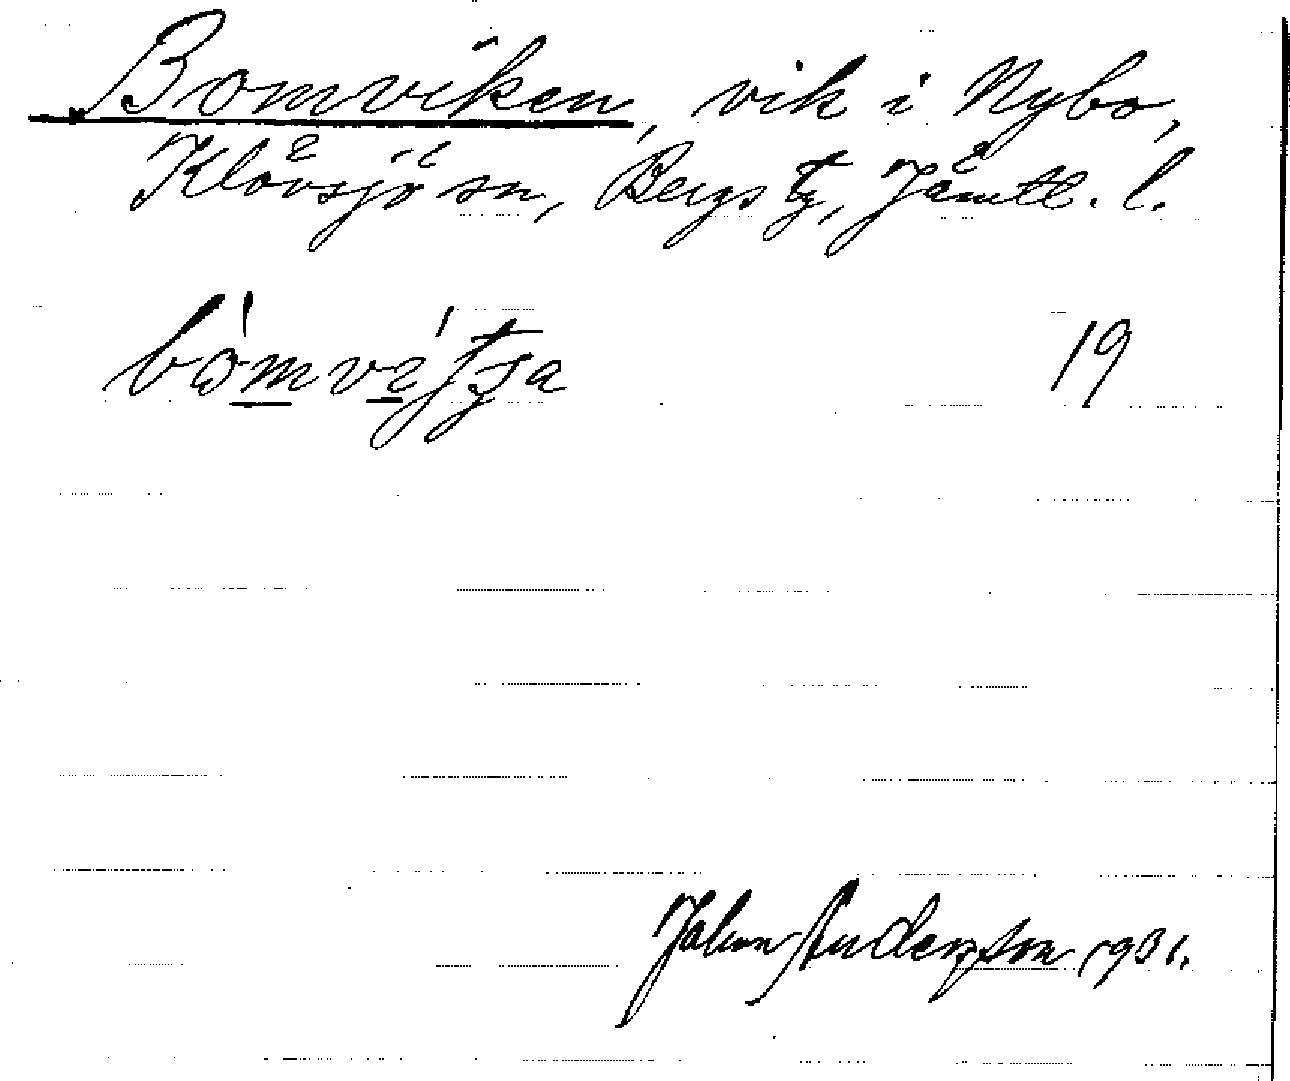 Bomviken, vik i Nybo,
Klövsjö sn, Bergs tg, Jämtl. l.
19
Johan Anderzson 1931.